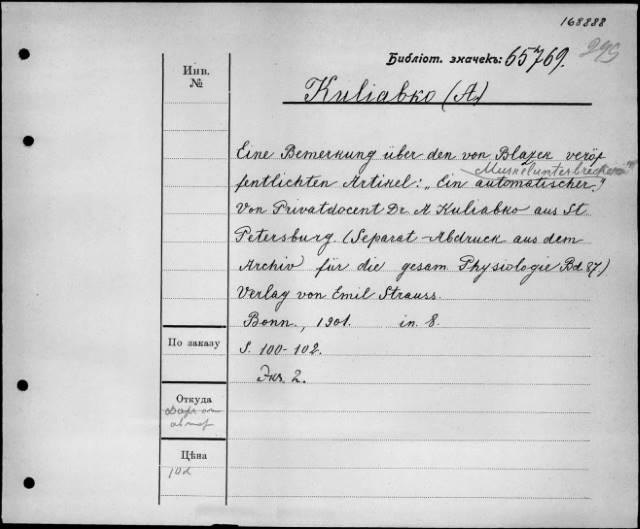 168888
Библіот. значекъ: 65769.
295
Инв.
№
Kuliabko (A)
Eine Bemerkung über den von Blazek veröf
Muskelunterbrecher"
fentlichten Artikel: „Ein automatischer."
Von Privatdocent Dr. A Kuliabko aus St
Petersburg. (Separat-Abdruck aus dem
Archiv für die gesam Physiologie Bd 87)
Verlag von Emil Strauss.
Bonn., 1901. in. 8.
По заказу
S. 100-102.
Экз. 2.
Откуда
Дар от
автор
Цѣна